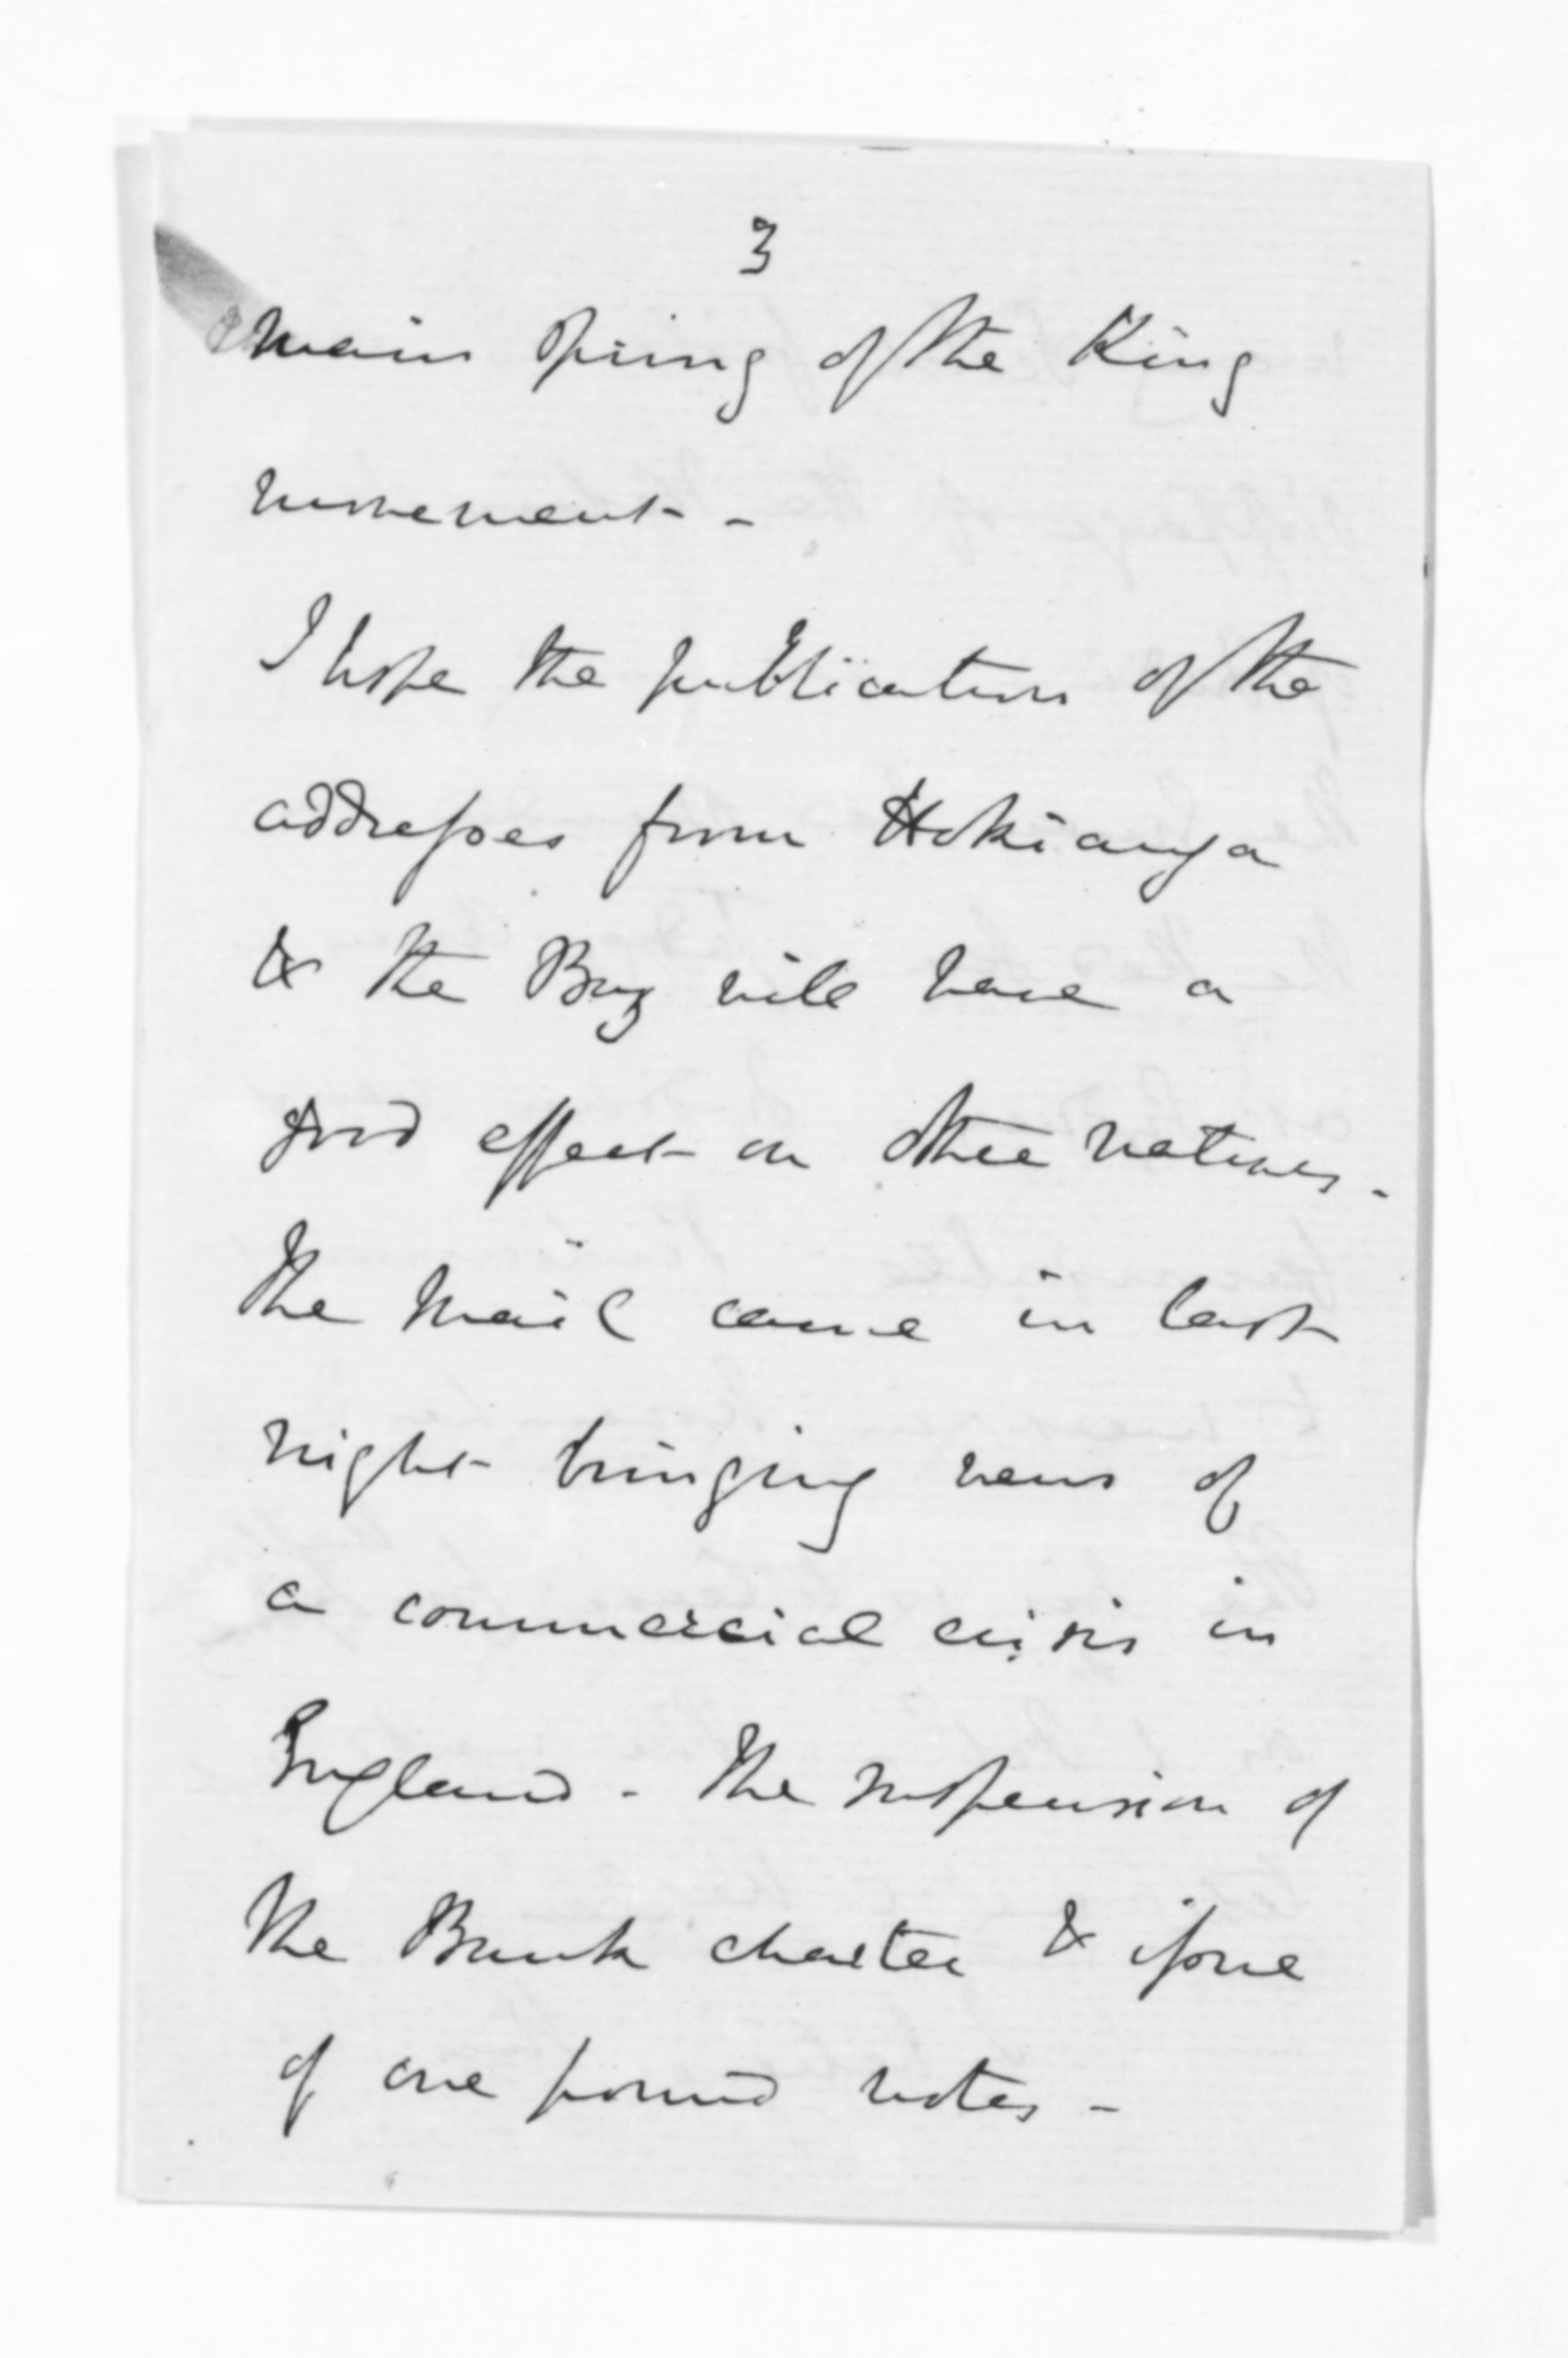 3
main spring of the King
movement -
I hope the publication of the
addresses from Hokianga
& the Bay will have a
good effect on other natives -
The Mail came in last
night bringing news of
a commercial crisis in
England - The suspension of
the Bank charter & issue
of one pound notes -